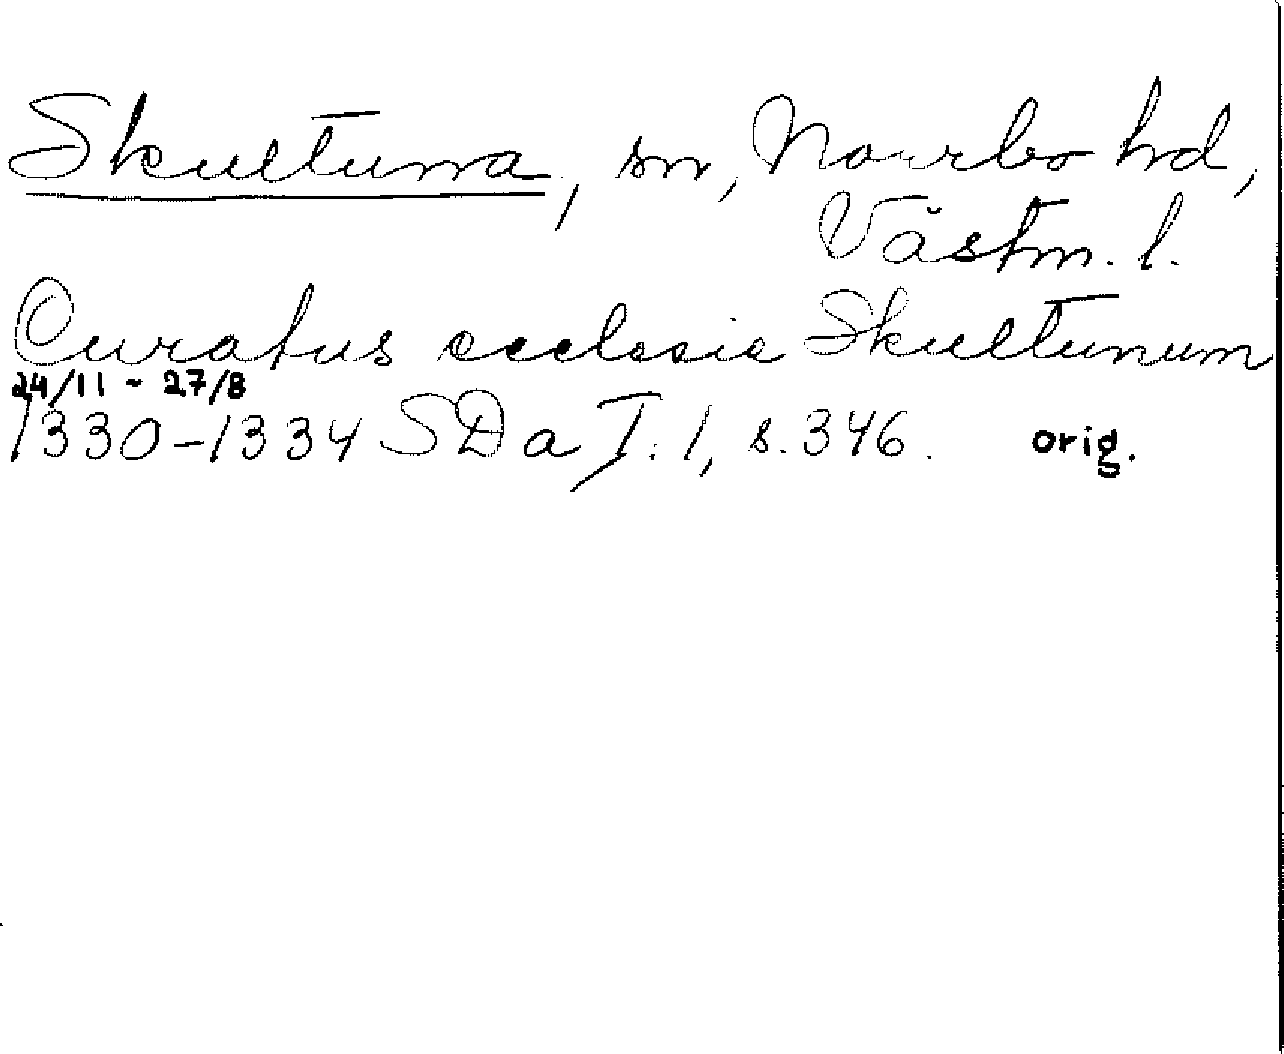 Skultuna, sn, Norrbo hd,
Västm. l.
Curatus ecclesie Skultunum
24/11 - 27/8
1330-1334 SDa I:1, s. 346. orig.